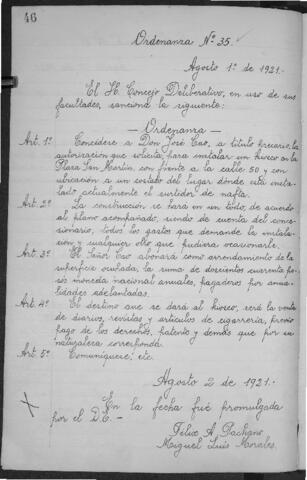 46
Ordenanza Nº 35.
Agosto 1º de 1921.
El H. Concejo Deliberativo, en uso de sus
facultades, sanciona la siguiente:
— Ordenanza —
Art. 1º Concédese a Don José Cao, a título precario, la
autorización que solicita para instalar un kiosco en la
Plaza San Martín, con frente a la calle 50 y con
ubicación a un costado del lugar donde está insta-
lado actualmente el surtidor de nafta.
Art. 2º La construcción se hará en un todo de acuerdo
al plano acompañado, siendo de cuenta del conce-
sionario, todos los gastos que demande la instala-
ción y cualquier otro que pudiera ocasionarle.
Art. 3º El Señor Cao abonará como arrendamiento de la
superficie ocupada, la suma de doscientos cuarenta pe-
sos moneda nacional anuales, pagaderos por anua-
lidades adelantadas.
Art. 4º El destino que se dará al kiosco, será la venta
de diarios, revistas y artículos de cigarrería, previo
pago de los derechos, patente y demás que por su
naturaleza corresponda.
Art. 5º Comuníquese, etc.
Agosto 2 de 1921.
En la fecha fué promulgada
por el D.E. —
Félix A.
Miguel Luis Morales.